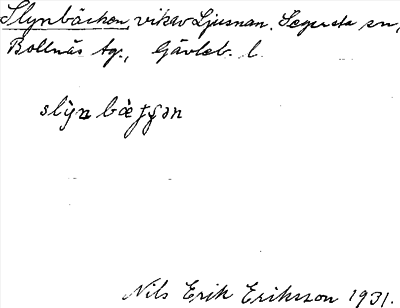 Slynbäcken, vik av Ljusnan. Segersta sn,
Bollnäs tg., Gävleb. l.
slỳn bæ̀ʄʄən
Nils Erik Eriksson 1931.